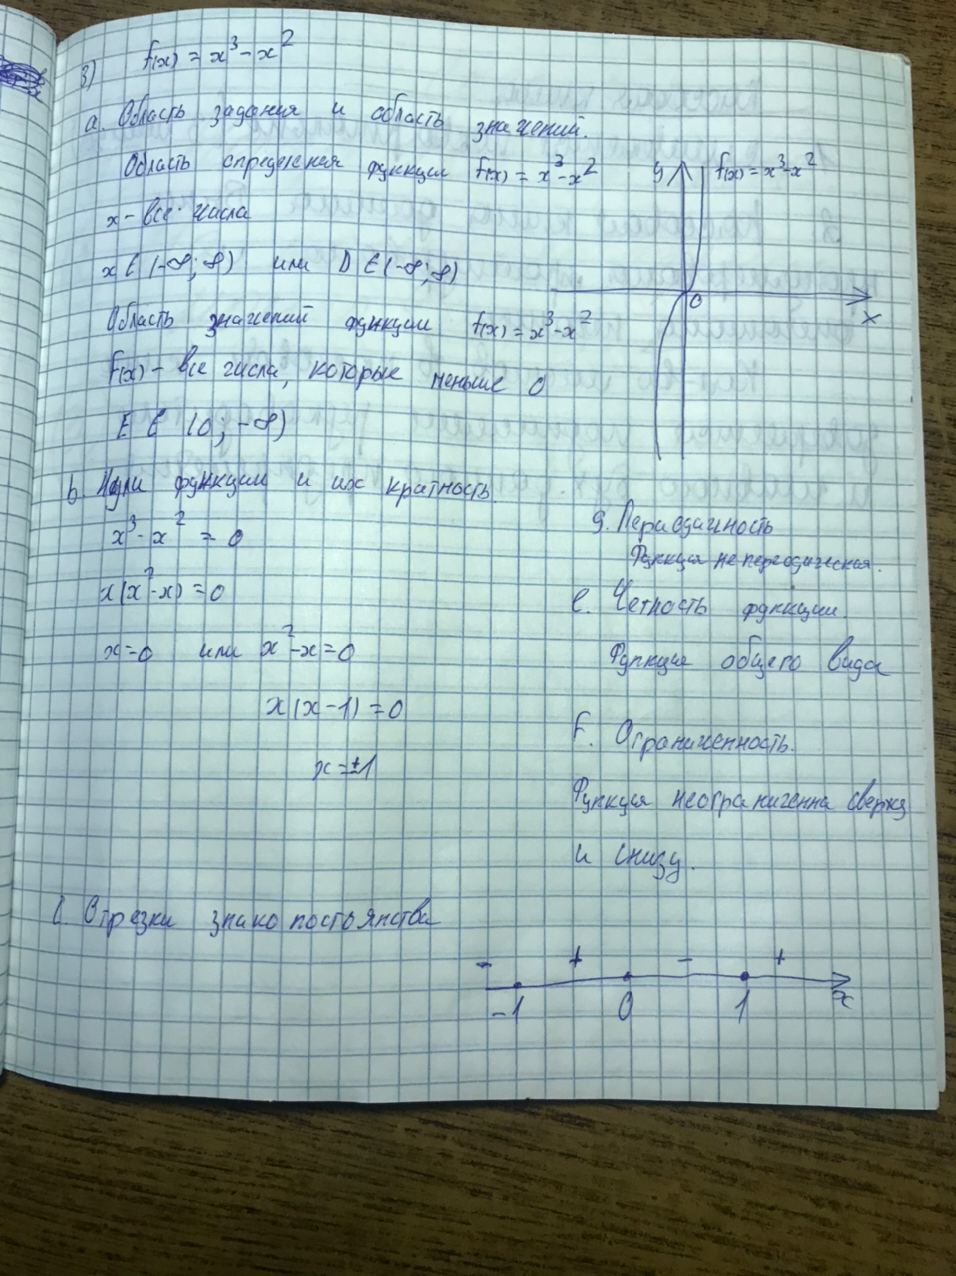 3) f(x) = x³ - x²
a. Область задания и область значений.
Область определения функции f(x) = x³ - x²
x - все числа
x ∈ (-∞; ∞) или D ∈ (-∞; ∞)
Область значений функции f(x) = x³ - x²
f(x) - все числа, которые меньше 0
E ∈ (0; -∞)
y
f(x) = x³ - x²
0
x
b. Нули функции и их кратность
x³ - x² = 0
x(x² - x) = 0
x = 0 или x² - x = 0
x(x - 1) = 0
x = ±1
g. Периодичность
Функция не переодическая.
e. Четность функции.
Функция общего вида
F. Ограниченность.
Функция неограниченна сверху
и снизу.
c. Отрезки знако постоянства
- + - +
-1 0 1 x